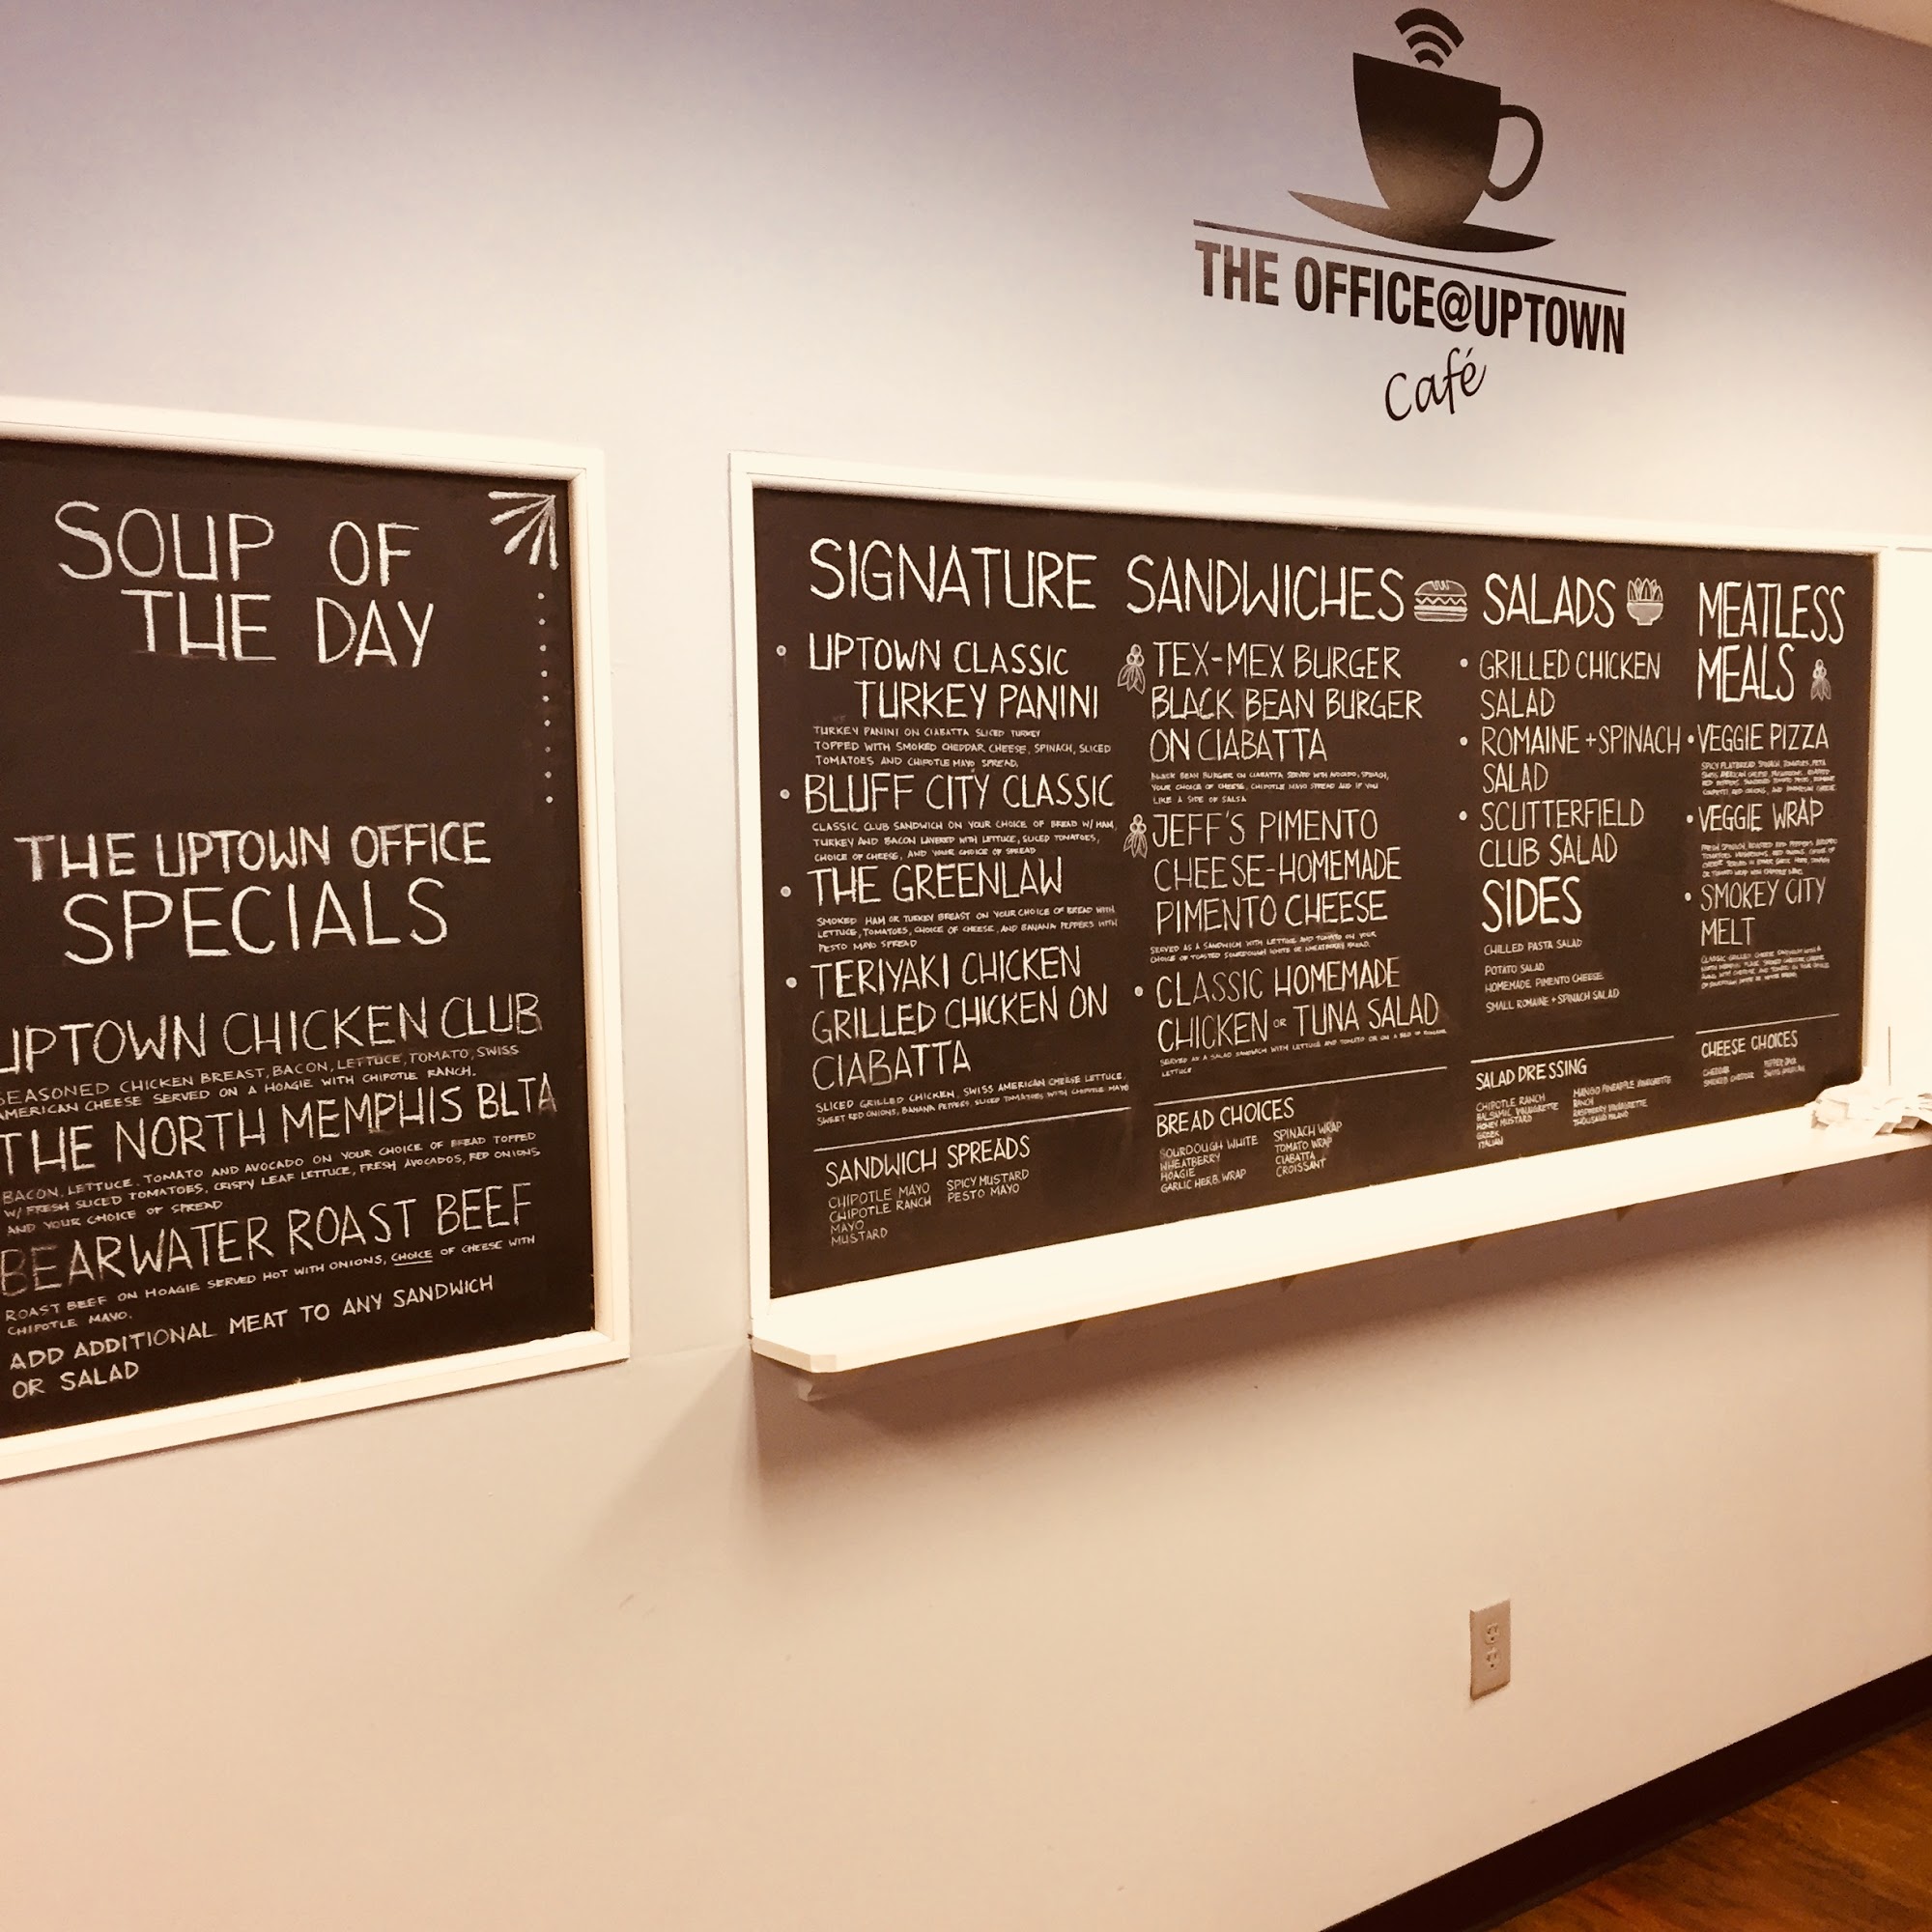 THE OFFICE@UPTOWN
Café
SOUP OF
THE DAY
THE UPTOWN OFFICE
SPECIALS
UPTOWN CHICKEN CLUB
SEASONED CHICKEN BREAST, BACON, LETTUCE, TOMATO, SWISS
AMERICAN CHEESE SERVED ON A HOAGIE WITH CHIPOTLE RANCH.
THE NORTH MEMPHIS BLTA
BACON, LETTUCE, TOMATO AND AVOCADO ON YOUR CHOICE OF BREAD TOPPED
W/ FRESH SLICED TOMATOES, CRISPY LEAF LETTUCE, FRESH AVOCADOS, RED ONIONS
AND YOUR CHOICE OF SPREAD
BEARWATER ROAST BEEF
ROAST BEEF ON HOAGIE SERVED HOT WITH ONIONS, CHOICE OF CHEESE WITH
CHIPOTLE MAYO.
ADD ADDITIONAL MEAT TO ANY SANDWICH
OR SALAD
SIGNATURE SANDWICHES
• UPTOWN CLASSIC
TURKEY PANINI
TURKEY PANINI ON CIABATTA SLICED TURKEY
TOPPED WITH SMOKED CHEDDAR CHEESE, SPINACH, SLICED
TOMATOES AND CHIPOTLE MAYO SPREAD.
• BLUFF CITY CLASSIC
CLASSIC CLUB SANDWICH ON YOUR CHOICE OF BREAD W/ HAM,
TURKEY AND BACON LAYERED WITH LETTUCE, SLICED TOMATOES,
CHOICE OF CHEESE, AND YOUR CHOICE OF SPREAD
• THE GREENLAW
SMOKED HAM OR TURKEY BREAST ON YOUR CHOICE OF BREAD WITH
LETTUCE, TOMATOES, CHOICE OF CHEESE, AND BANANA PEPPERS WITH
PESTO MAYO SPREAD
• TERIYAKI CHICKEN
GRILLED CHICKEN ON
CIABATTA
SLICED GRILLED CHICKEN, SWISS AMERICAN CHEESE LETTUCE,
SWEET RED ONIONS, BANANA PEPPERS, SLICED TOMATOES WITH CHIPOTLE MAYO
SANDWICH SPREADS
CHIPOTLE MAYO
CHIPOTLE RANCH
MAYO
MUSTARD
SPICY MUSTARD
PESTO MAYO
TEX-MEX BURGER
BLACK BEAN BURGER
ON CIABATTA
BLACK BEAN BURGER ON CIABATTA SERVED WITH AVOCADO, SPINACH,
YOUR CHOICE OF CHEESE, CHIPOTLE MAYO SPREAD AND IF YOU
LIKE A SIDE OF SALSA
JEFF'S PIMENTO
CHEESE-HOMEMADE
PIMENTO CHEESE
SERVED AS A SANDWICH WITH LETTUCE AND TOMATO ON YOUR
CHOICE OF TOASTED SOURDOUGH WHITE OR WHEATBERRY BREAD.
• CLASSIC HOMEMADE
CHICKEN OR TUNA SALAD
SERVED AS A SALAD SANDWICH WITH LETTUCE AND TOMATO OR ON A BED OF ROMAINE
LETTUCE
BREAD CHOICES
SOURDOUGH WHITE
WHEATBERRY
HOAGIE
GARLIC HERB WRAP
SPINACH WRAP
TOMATO WRAP
CIABATTA
CROISSANT
SALADS
• GRILLED CHICKEN
SALAD
• ROMAINE + SPINACH
SALAD
• SCUTTERFIELD
CLUB SALAD
SIDES
CHILLED PASTA SALAD
POTATO SALAD
HOMEMADE PIMENTO CHEESE
SMALL ROMAINE + SPINACH SALAD
SALAD DRESSING
CHIPOTLE RANCH
BALSAMIC VINAIGRETTE
HONEY MUSTARD
GREEK
ITALIAN
MANGO PINEAPPLE VINAIGRETTE
RANCH
RASPBERRY VINAIGRETTE
THOUSAND ISLAND
MEATLESS
MEALS
• VEGGIE PIZZA
• VEGGIE WRAP
• SMOKEY CITY
MELT
CHEESE CHOICES
CHEDDAR
SMOKED CHEDDAR
PEPPER JACK
SWISS AMERICAN